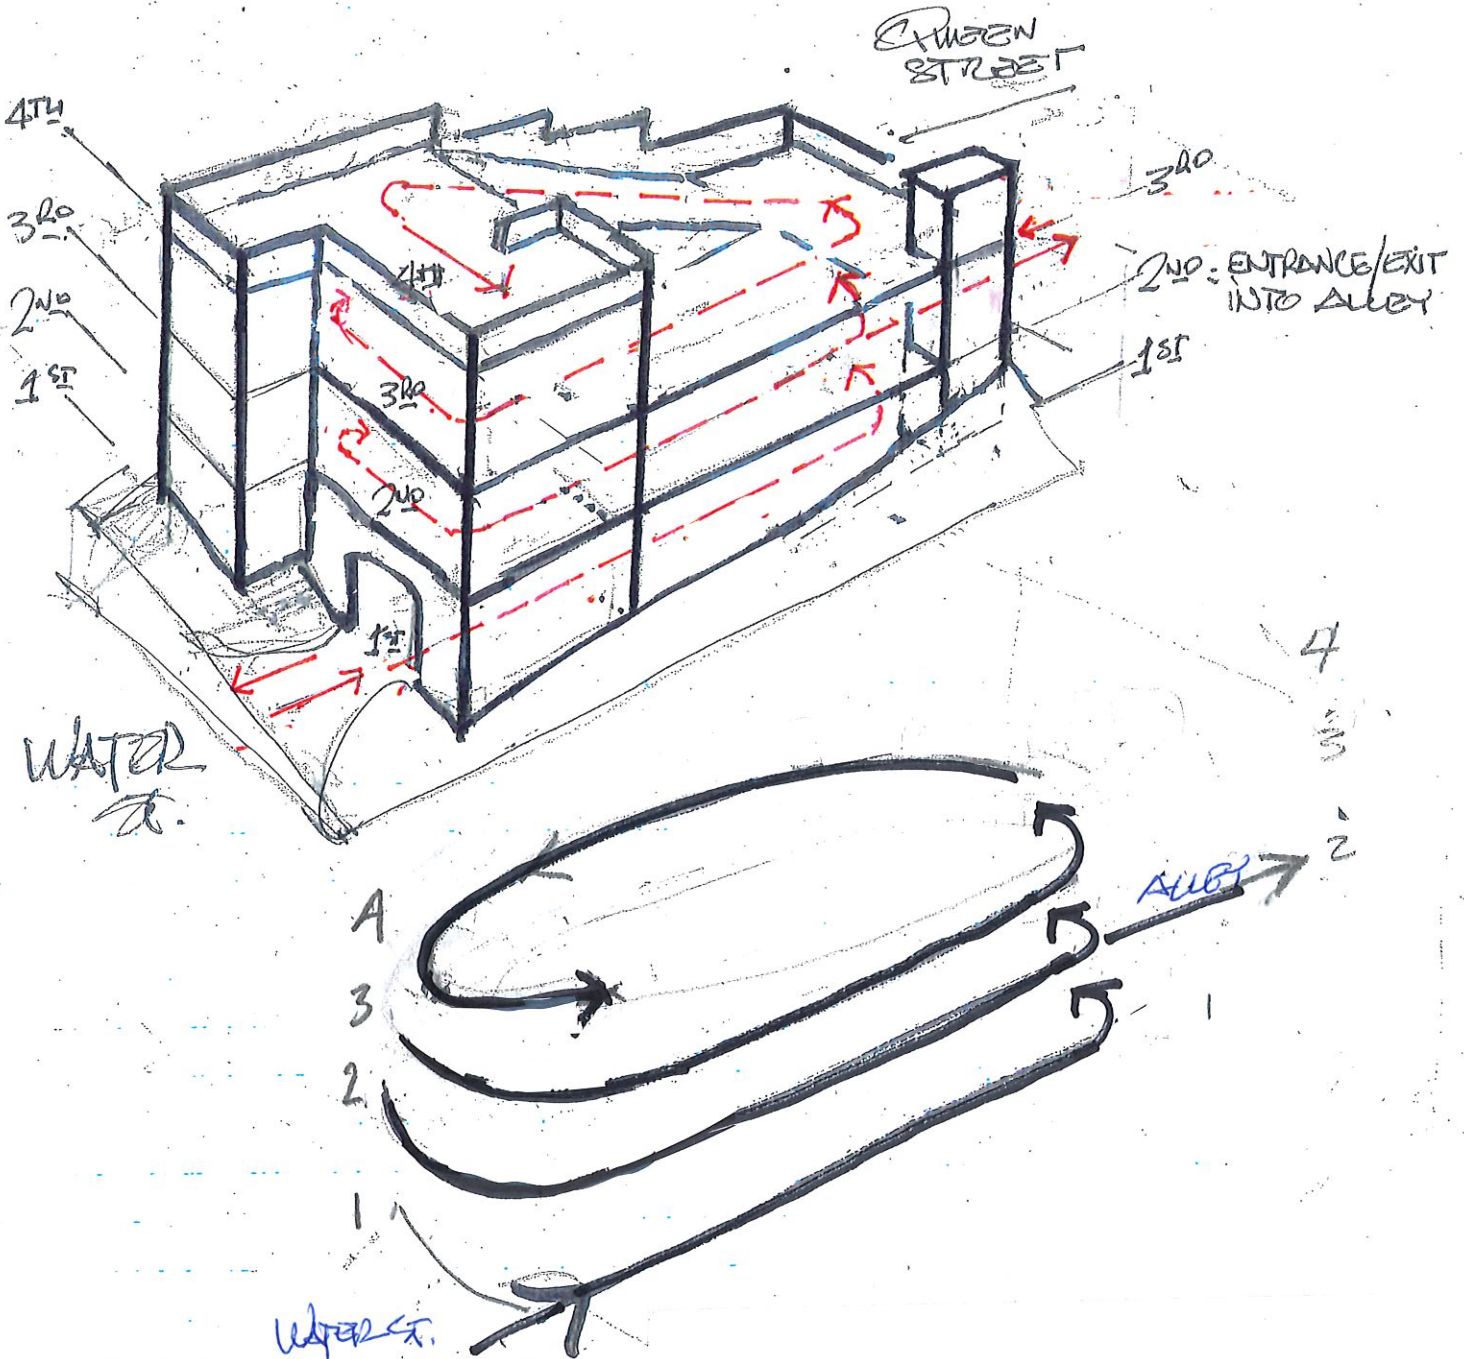 QUEEN
STREET
4TH
3RD
2ND
1ST
3RD
2ND: ENTRANCE/EXIT
INTO ALLEY
1ST
4TH
3RD
2ND
1ST
WATER
ST.
4
3
2
ALLEY
1
4
3
2
1
WATER ST.